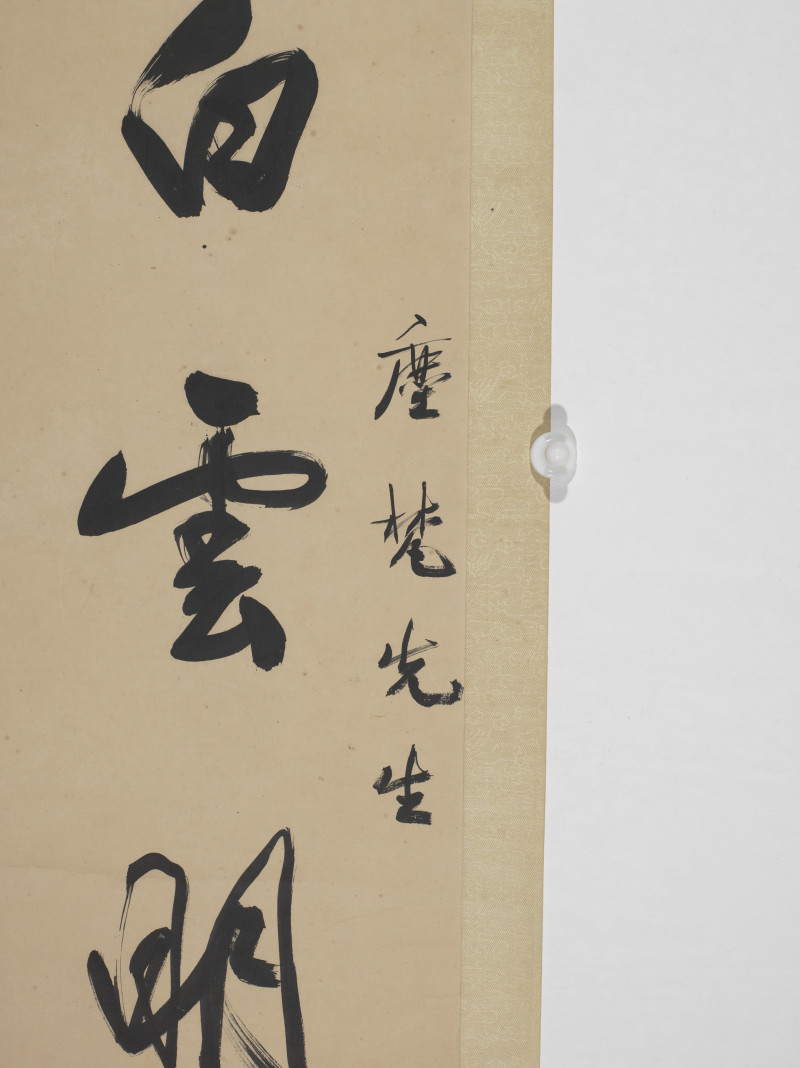 塵梵先生
白雲明